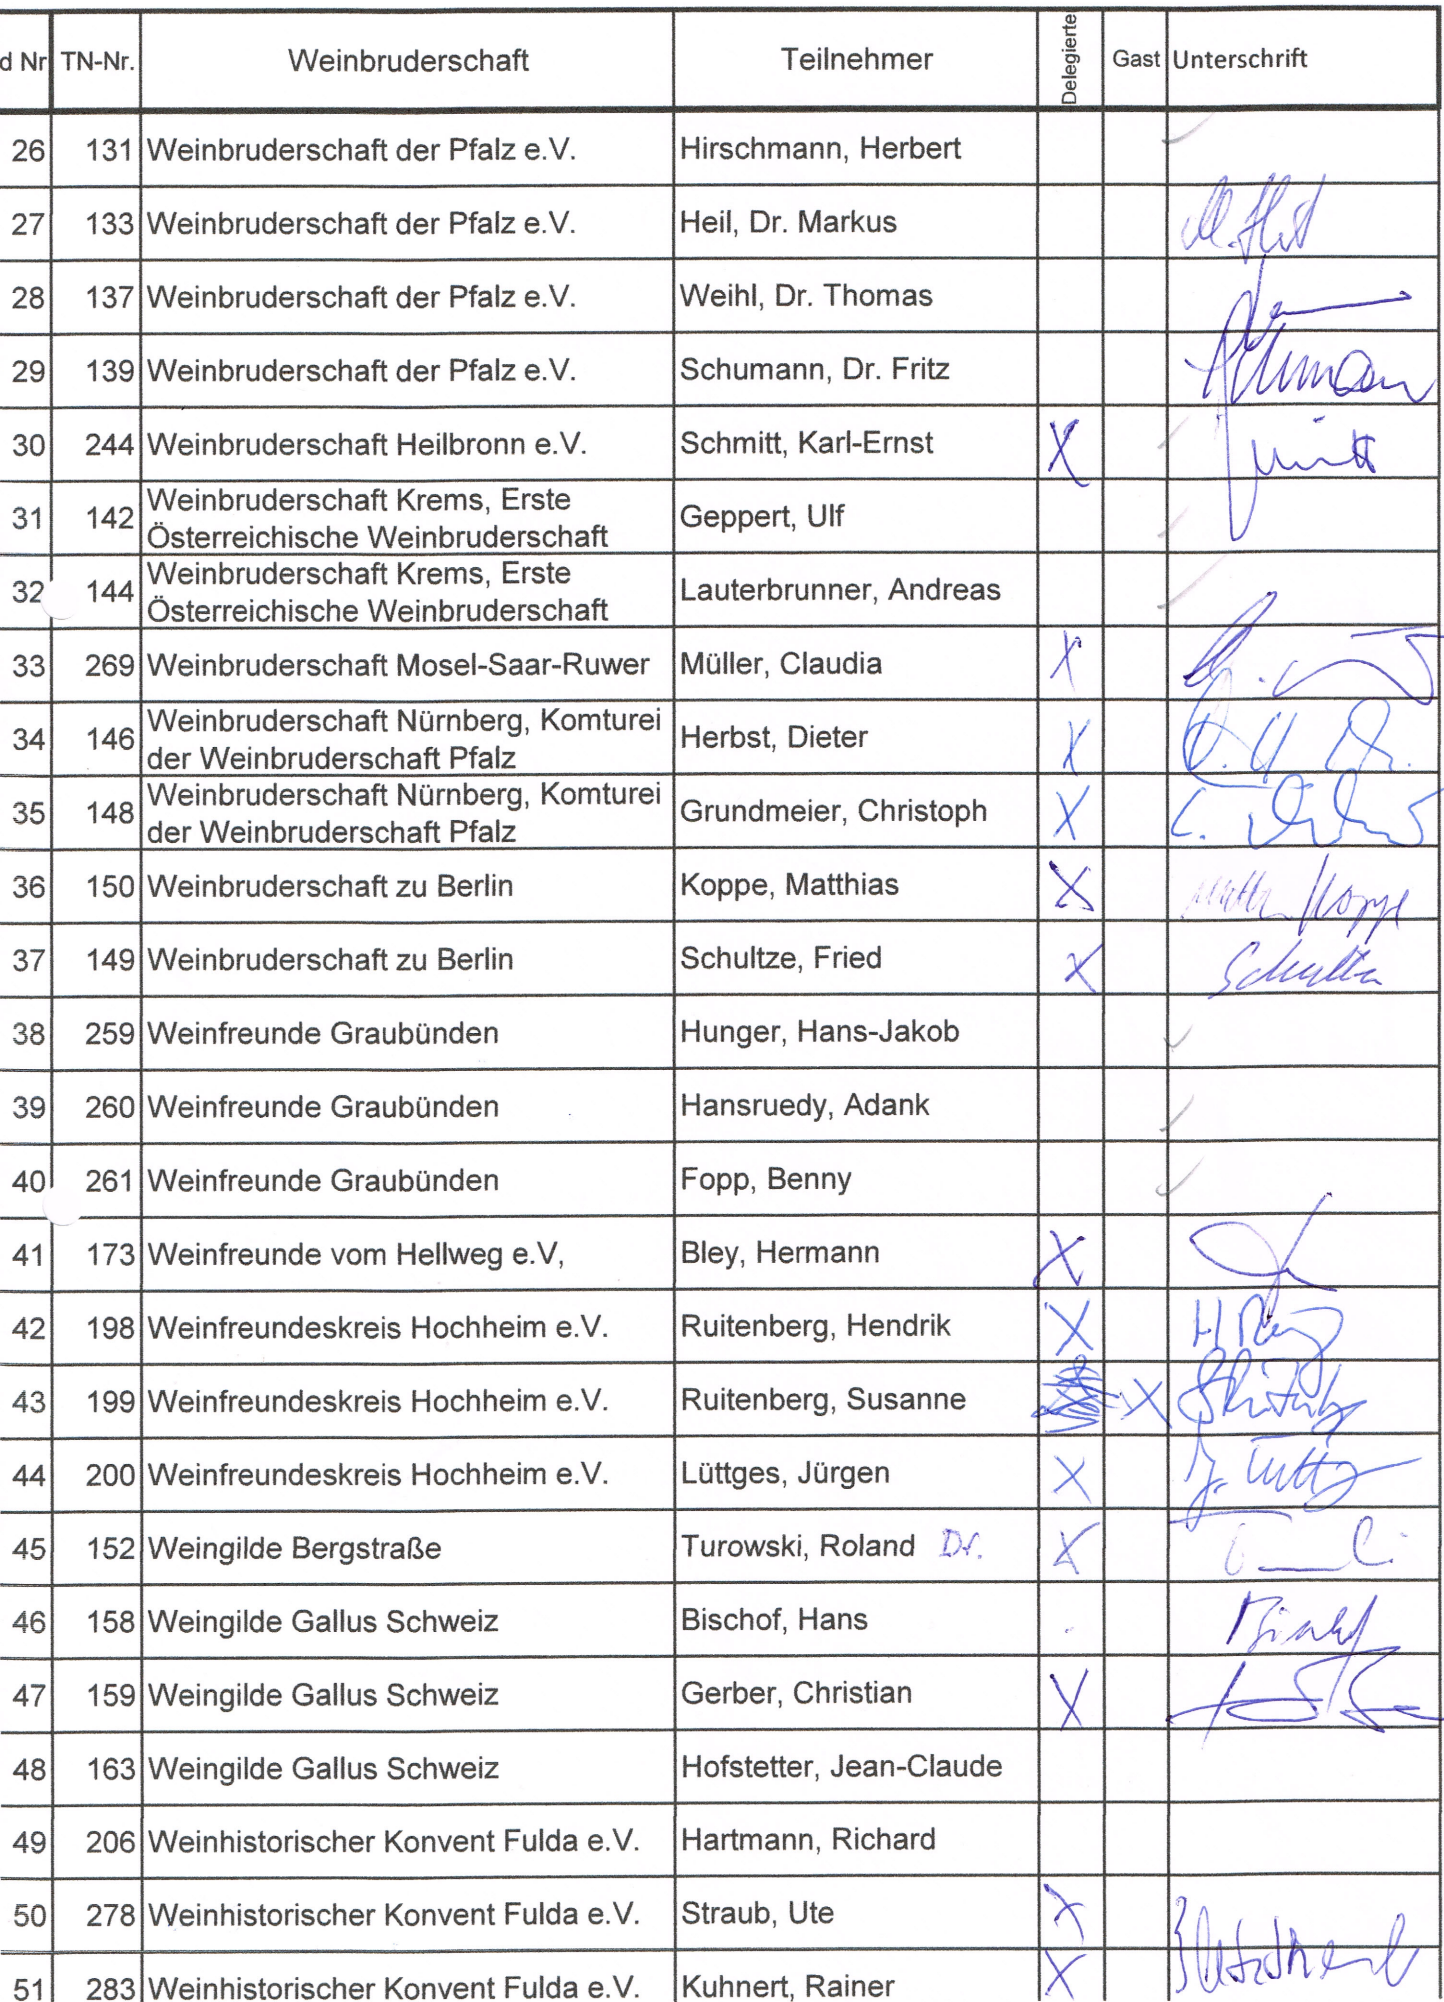 d Nr TN-Nr. Weinbruderschaft Teilnehmer Delegierte Gast Unterschrift
26 131 Weinbruderschaft der Pfalz e.V. Hirschmann, Herbert
27 133 Weinbruderschaft der Pfalz e.V. Heil, Dr. Markus
28 137 Weinbruderschaft der Pfalz e.V. Weihl, Dr. Thomas
29 139 Weinbruderschaft der Pfalz e.V. Schumann, Dr. Fritz
30 244 Weinbruderschaft Heilbronn e.V. Schmitt, Karl-Ernst X
31 142 Weinbruderschaft Krems, Erste
Österreichische Weinbruderschaft Geppert, Ulf
32 144 Weinbruderschaft Krems, Erste
Österreichische Weinbruderschaft Lauterbrunner, Andreas
33 269 Weinbruderschaft Mosel-Saar-Ruwer Müller, Claudia X
34 146 Weinbruderschaft Nürnberg, Komturei
der Weinbruderschaft Pfalz Herbst, Dieter X
35 148 Weinbruderschaft Nürnberg, Komturei
der Weinbruderschaft Pfalz Grundmeier, Christoph X
36 150 Weinbruderschaft zu Berlin Koppe, Matthias X Koppe
37 149 Weinbruderschaft zu Berlin Schultze, Fried X
38 259 Weinfreunde Graubünden Hunger, Hans-Jakob
39 260 Weinfreunde Graubünden Hansruedy, Adank
40 261 Weinfreunde Graubünden Fopp, Benny
41 173 Weinfreunde vom Hellweg e.V, Bley, Hermann X
42 198 Weinfreundeskreis Hochheim e.V. Ruitenberg, Hendrik X
43 199 Weinfreundeskreis Hochheim e.V. Ruitenberg, Susanne X
44 200 Weinfreundeskreis Hochheim e.V. Lüttges, Jürgen X
45 152 Weingilde Bergstraße Turowski, Roland Dr. X
46 158 Weingilde Gallus Schweiz Bischof, Hans
47 159 Weingilde Gallus Schweiz Gerber, Christian X
48 163 Weingilde Gallus Schweiz Hofstetter, Jean-Claude
49 206 Weinhistorischer Konvent Fulda e.V. Hartmann, Richard
50 278 Weinhistorischer Konvent Fulda e.V. Straub, Ute X
51 283 Weinhistorischer Konvent Fulda e.V. Kuhnert, Rainer X